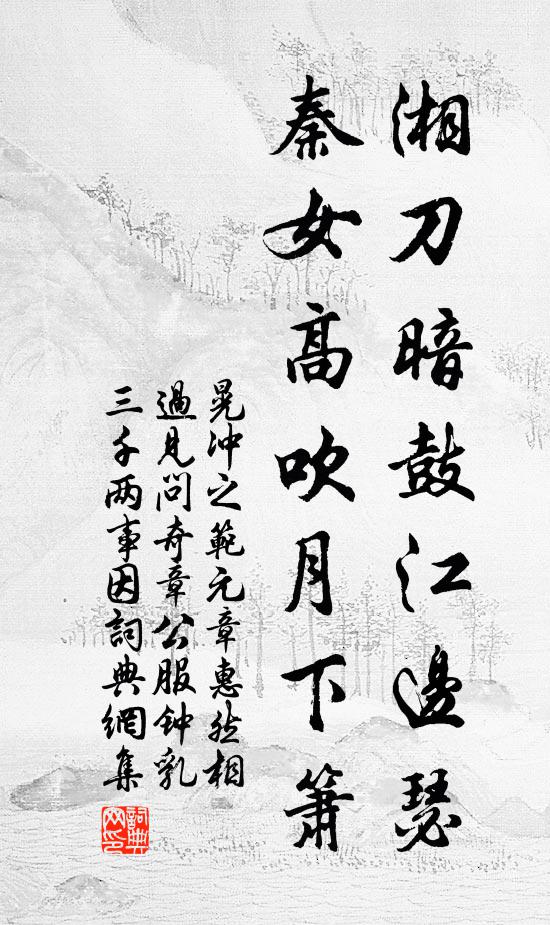 湘刀暗鼓江邊瑟
秦女高吹月下簫
晃沖之範元章惠然相
過見問奇章公服钟乳
三千两事因詞典網集
詞典網印